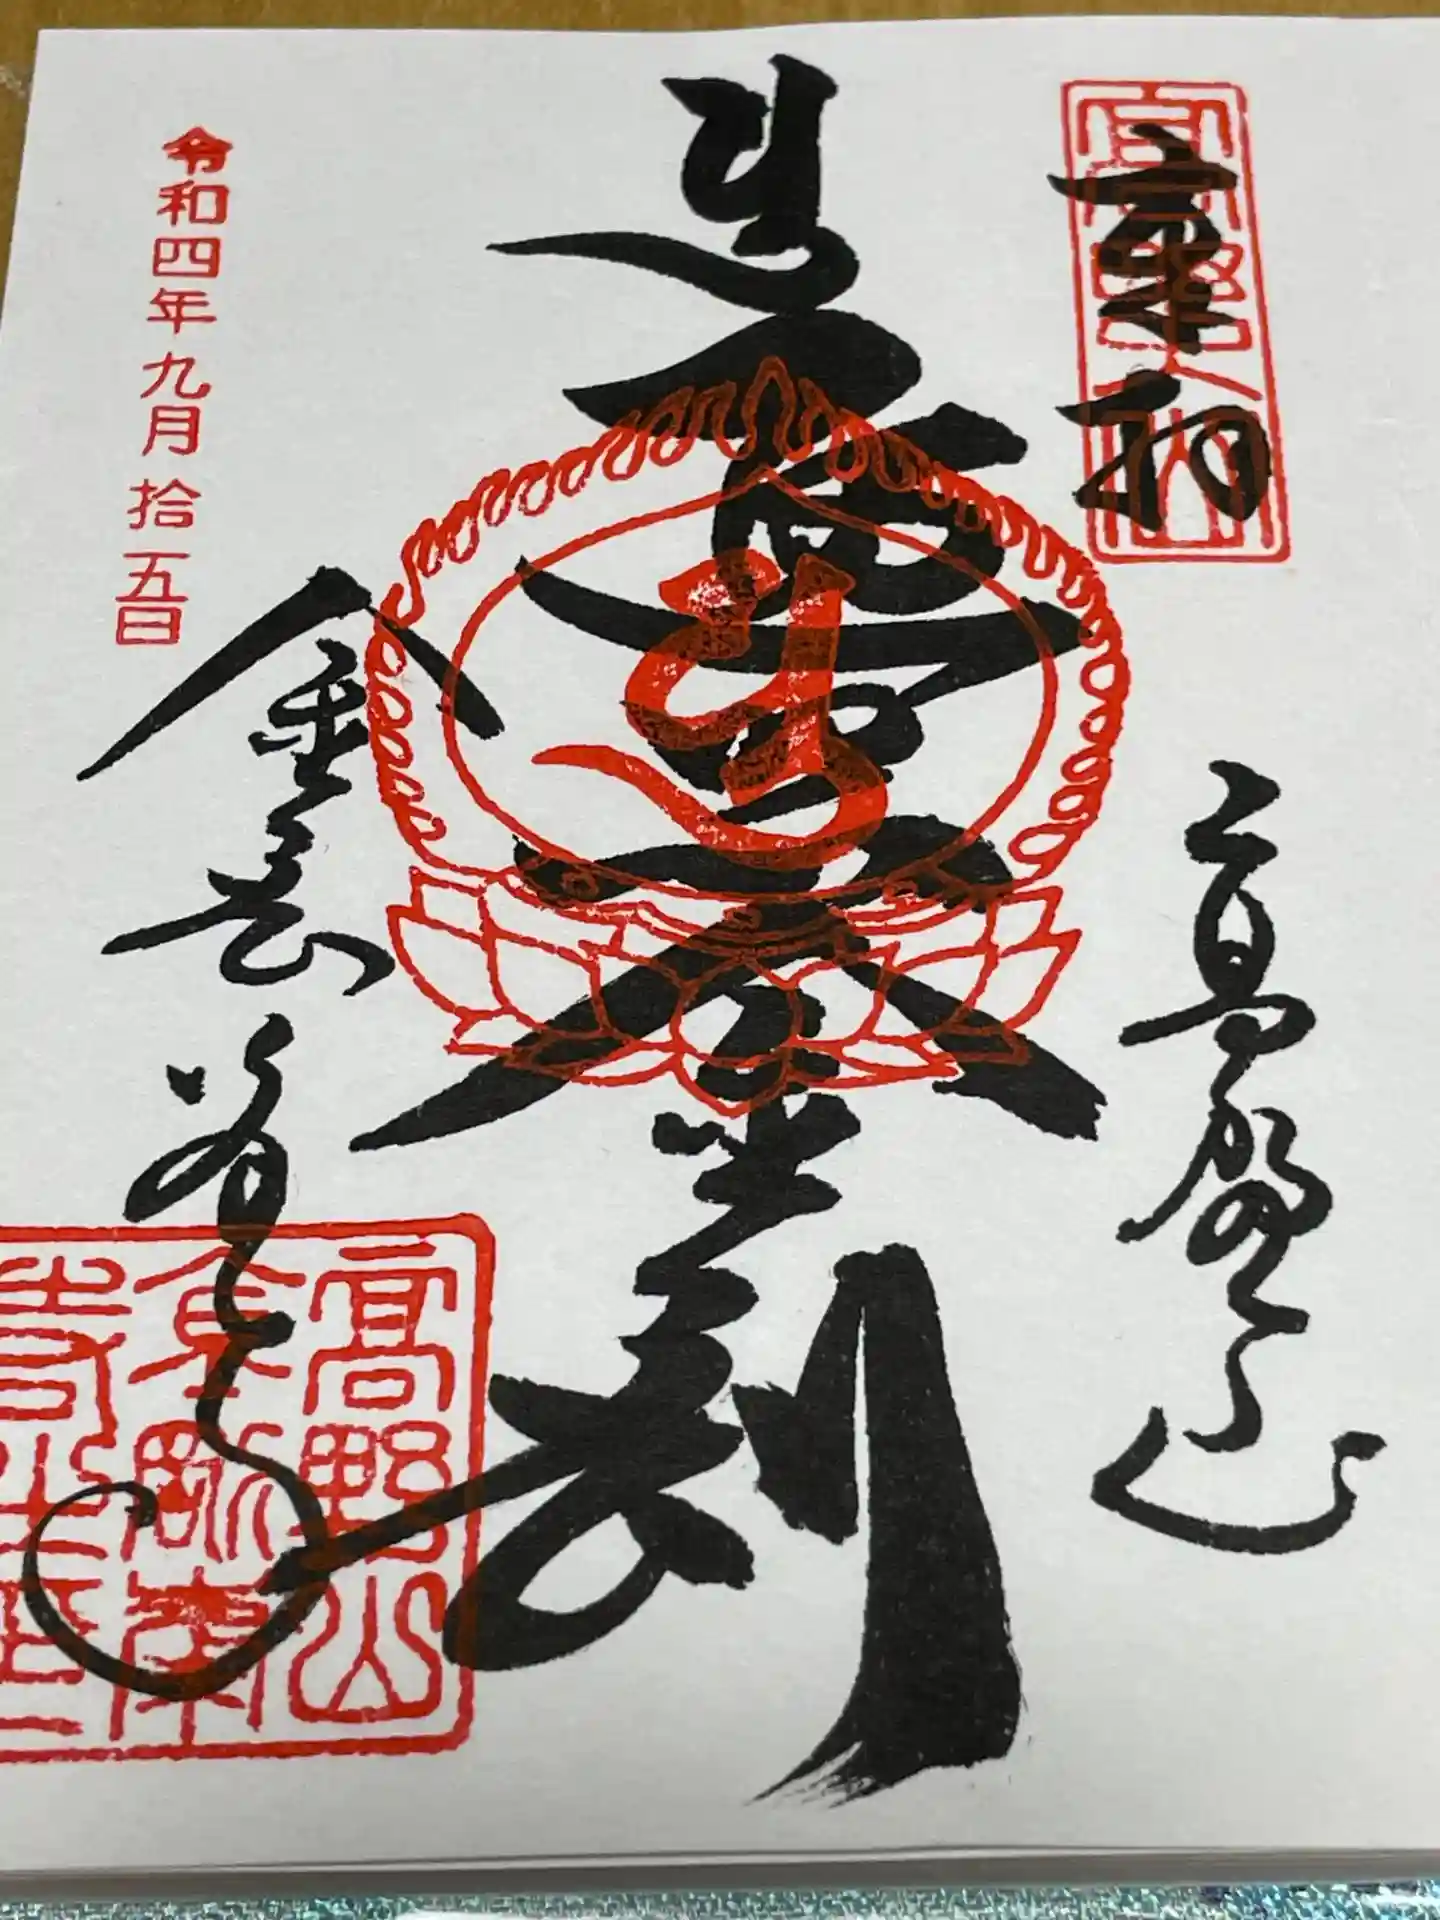 奉拝
高野山
遍照金剛
金剛峯寺
令和四年九月拾五日
高野山
金剛峯